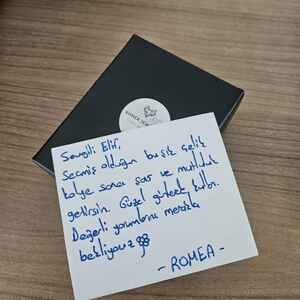 Sevgili Elif,
Seçmiş olduğun bu şık çelik
kolye sana şans ve mutluluk
getirsin. Güzel günlerde kullan.
Değerli yorumlarını merakla
bekliyoruz
- ROMEA -